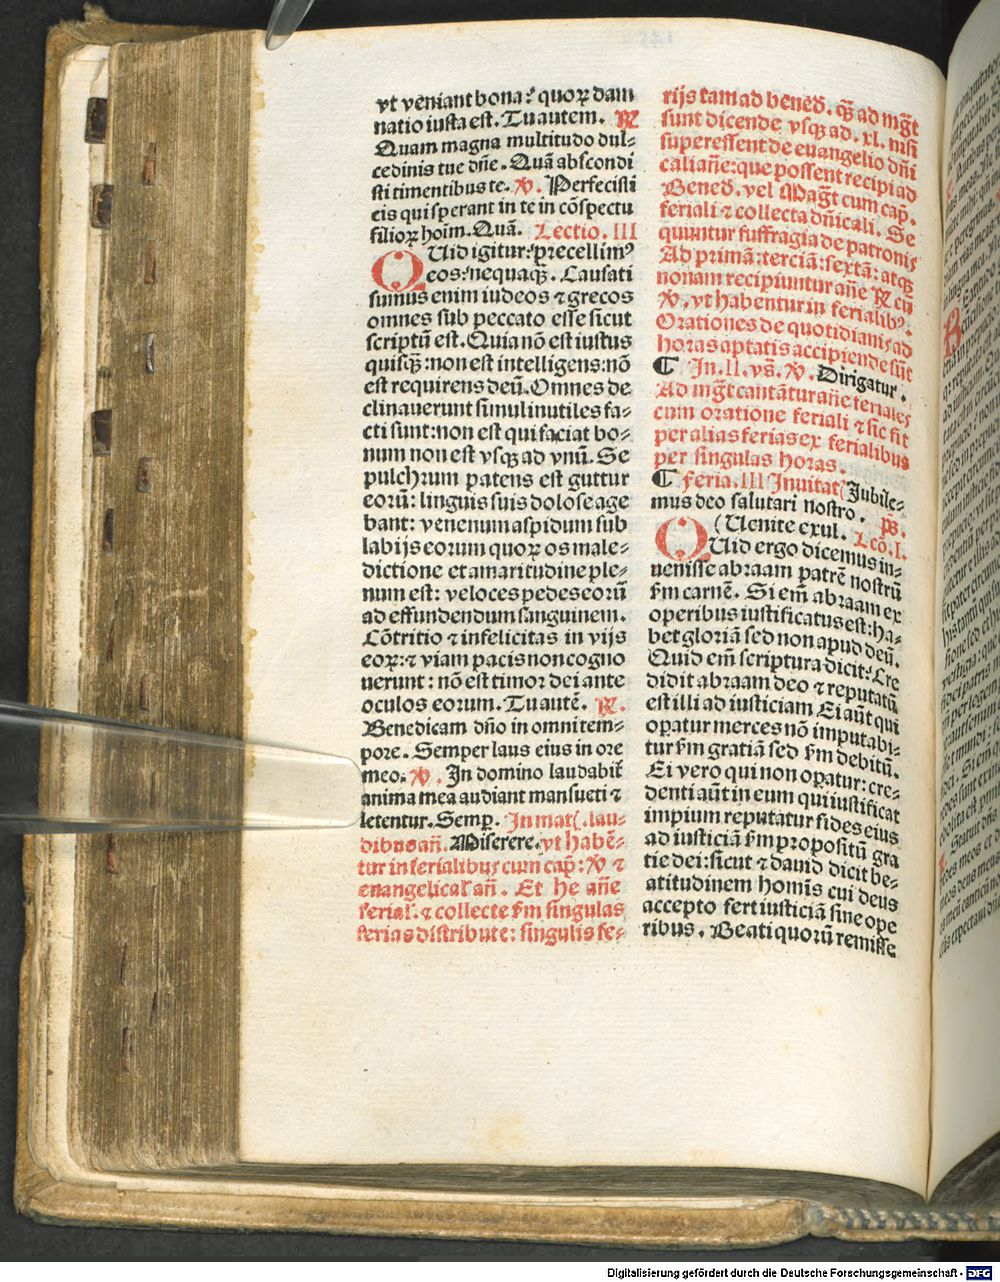 vt veniant bona? quoꝝ dam
natio iusta est. Tu autem. ℟
Quam magna multitudo dul⸗
cedinis tue dn̄e. Quā abscondi
sti timentibus te. ℣. Perfecisti
eis qui sperant in te in cōspectu
filioꝝ hoīm. Quā. Lectio. III
QUid igitur? precellimꝰ
eos? nequaqꝫ. Causati
sumus enim iudeos ⁊ grecos
omnes sub peccato esse sicut
scriptū est. Quia nō est iustus
quisqꝫ: non est intelligens: nō
est requirens deū. Omnes de
clinauerunt simul inutiles fa⸗
cti sunt: non est qui faciat bo⸗
num non est vsqꝫ ad vnū. Se
pulchrum patens est guttur
eorū: linguis suis dolose age
bant: venenum aspidum sub
labijs eorum quoꝝ os male⸗
dictione et amaritudine ple⸗
num est: veloces pedes eorū
ad effundendum sanguinem.
Cōtritio ⁊ infelicitas in vijs
eoꝝ: ⁊ viam pacis non cogno
uerunt: nō est timor dei ante
oculos eorum. Tu autē. ℟.
Benedicam dn̄o in omni tem⸗
pore. Semper laus eius in ore
meo. ℣. In domino laudabit̄
anima mea audiant mansueti ⁊
letentur. Semꝑ. In mat(. lau⸗
dibus an̄. Miserere. vt habē⸗
tur in ferialibus cum cap̄: ℣ ⁊
euangelical' an̄. Et he an̄e
ferial'. ⁊ collecte s̄m singulas
ferias distribute: singulis fe⸗
rijs tam ad bened̄. qꝫ̄ ad mḡt
sunt dicende vsqꝫ ad. xl. nisi
superessent de euangelio dn̄i
cali an̄e: que possent recipi ad
Bened̄. vel Maḡt cum cap̄.
feriali ⁊ collecta dn̄icali. Se
quuntur suffragia de patronis
Ad primā: terciā: sextā: atqꝫ
nonam recipiuntur an̄e ℟ cū
℣. vt habentur in ferialibꝰ.
Orationes de quotidianis ad
horas aptatis accipiende sūt
¶ In. II. vs̄. ℣. Dirigatur.
Ad mḡt cantātur an̄e feriales
cum oratione feriali ⁊ sic fit
per alias ferias ex ferialibus
per singulas horas.
¶ feria. III Inuitat( Jubile⸗
mus deo salutari nostro. ps̄.
(Uenite exul. Lcō. I.
QUid ergo dicemus in⸗
uenisse abraam patrē nostrū
s̄m carnē. Si em̄ abraam ex
operibus iustificatus est: ha⸗
bet gloriā sed non apud deū.
Quid em̄ scriptura dicit? Cre
didit abraam deo ⁊ reputatū
est illi ad iusticiam Ei aūt qui
oꝑatur merces nō imputabi⸗
tur s̄m gratiā sed s̄m debitū.
Ei vero qui non oꝑatur: cre⸗
denti aūt in eum qui iustificat
impium reputatur fides eius
ad iusticiā s̄m propositū gra
tie dei: sicut ⁊ dauid dicit be⸗
atitudinem homīs cui deus
accepto fert iusticiā sine ope
ribus. Beati quorū remisse
Digitalisierung gefördert durch die Deutsche Forschungsgemeinschaft - DFG